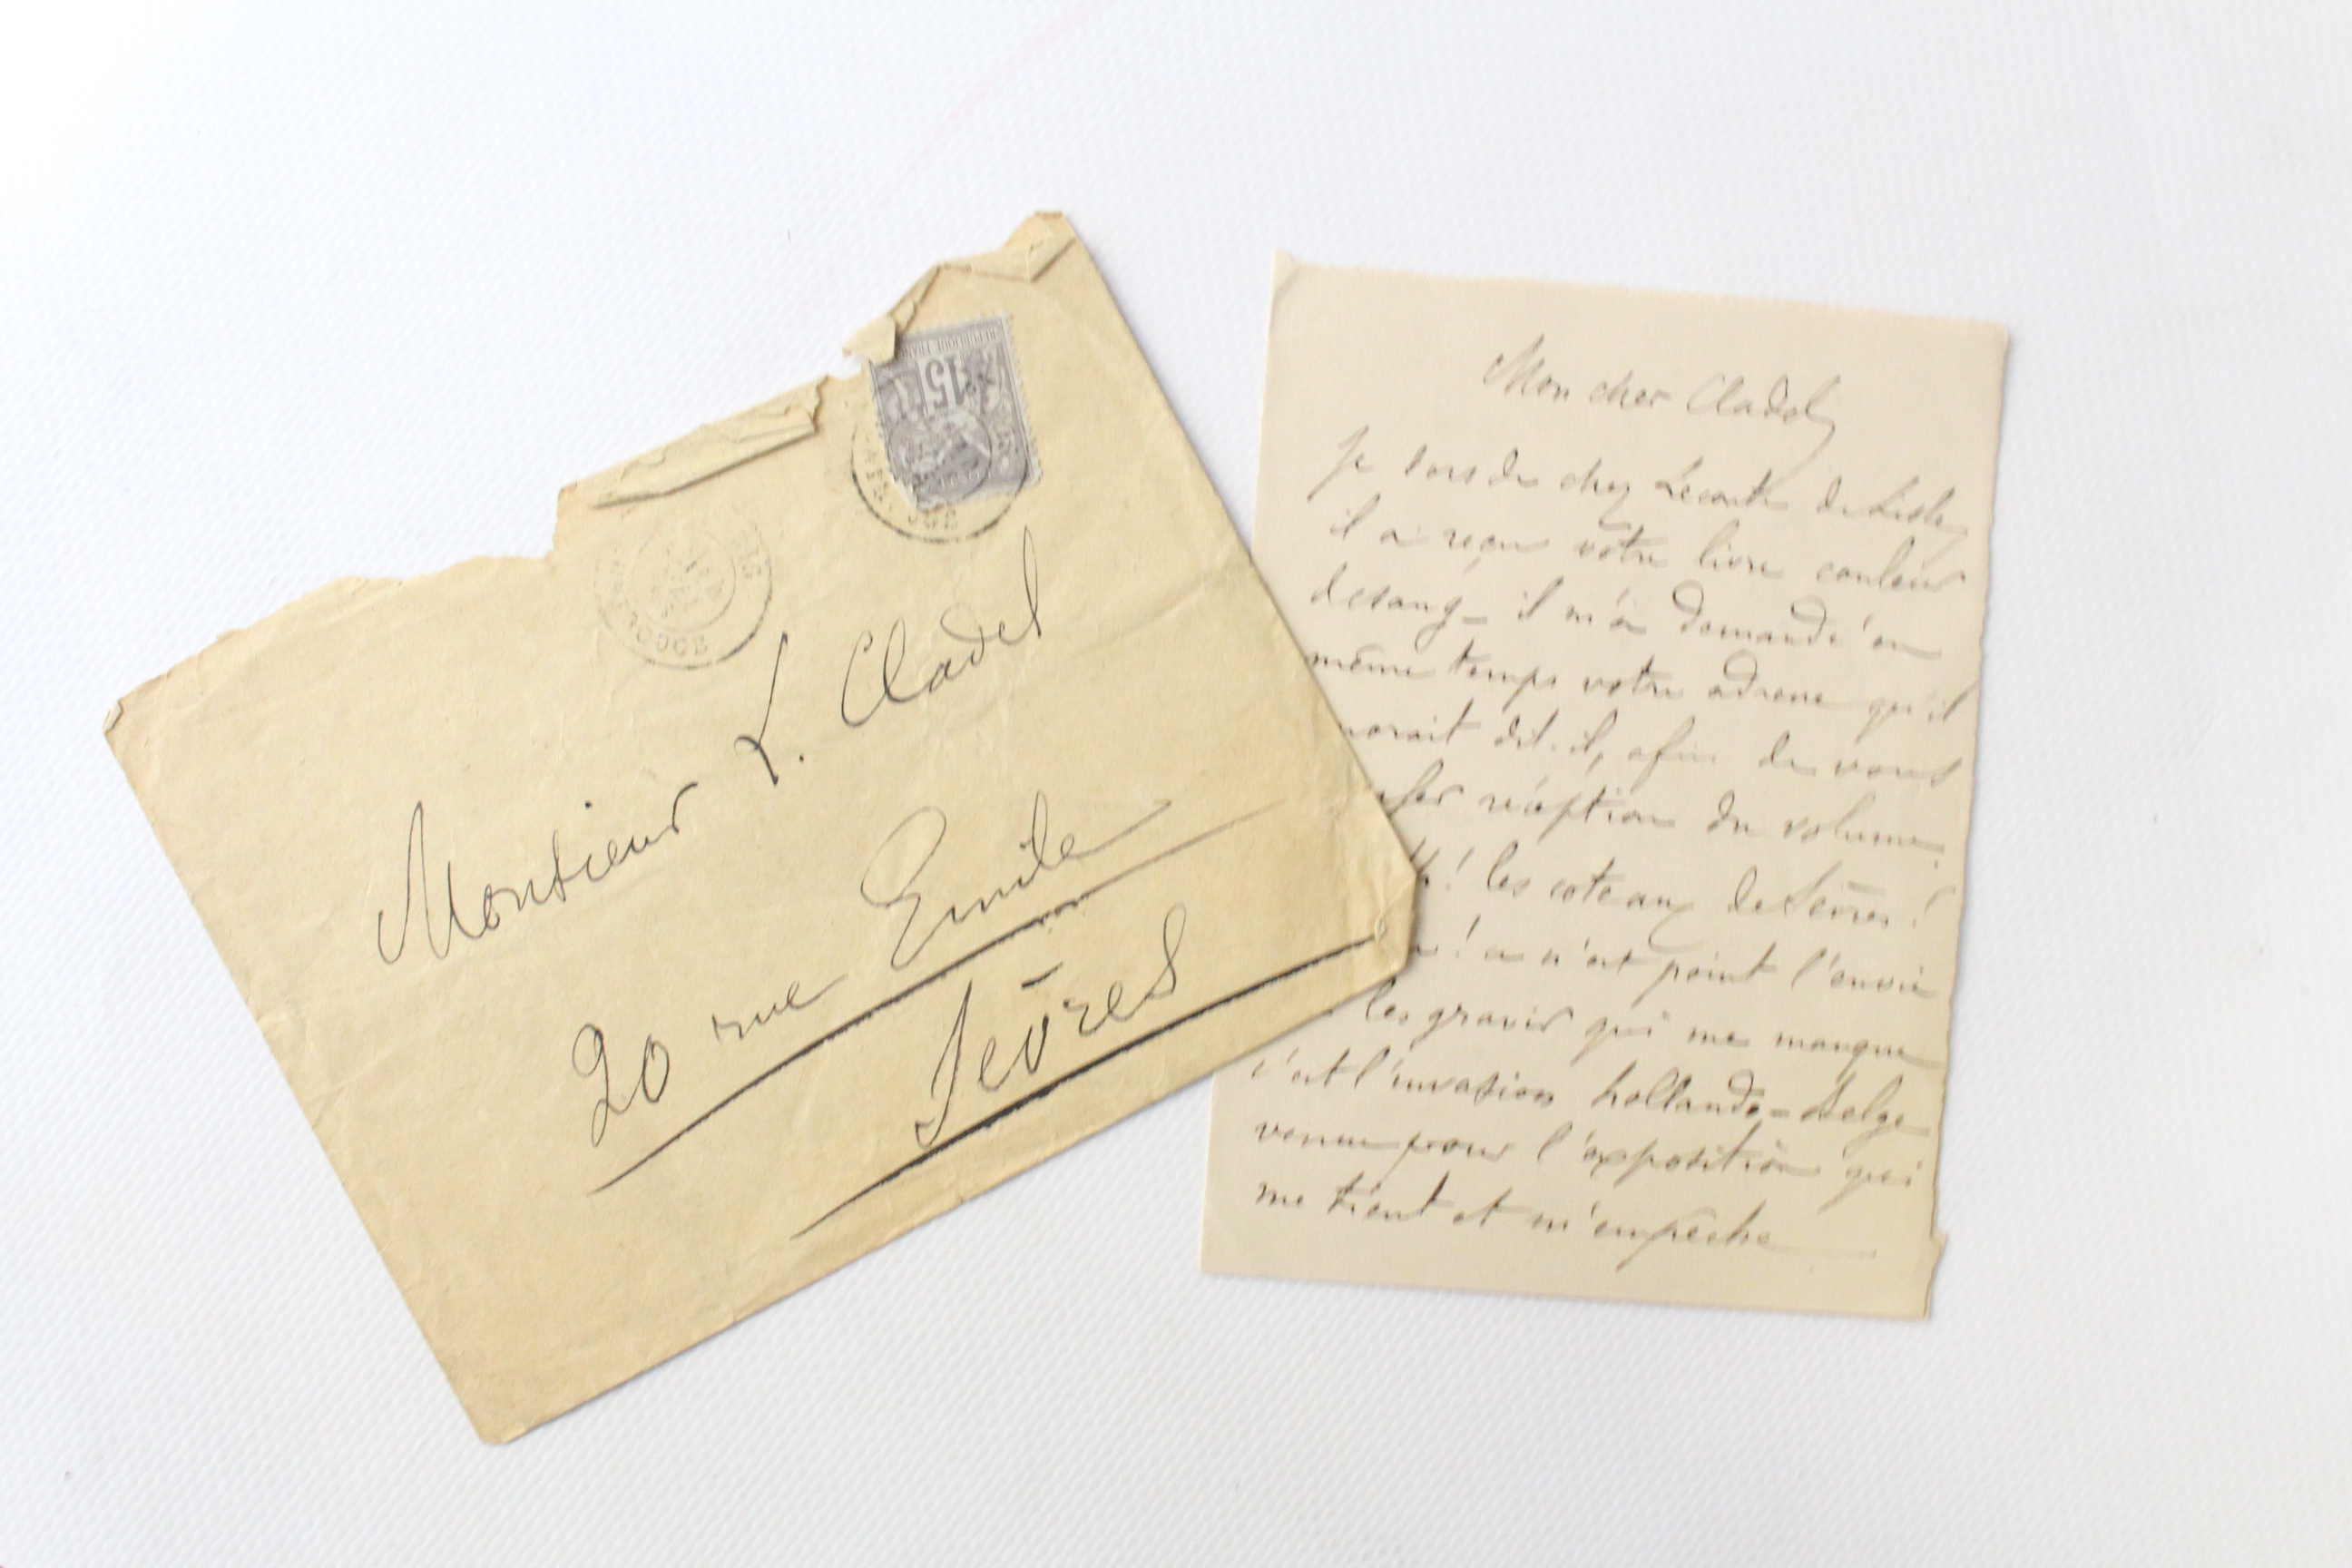 Monsieur L. Cladel
20 rue Emile
Sèvres
15
Mon cher Cladel,
Je sors de chez Leconte de Lisle,
il a reçu votre livre couleur
de sang - il m'a demandé en
même temps votre adresse qu'il
norait dit-il, afin de vous
réception du volume.
! les coteaux de Sèvres !
! ce n'est point l'envie
les gravir qui me manque
c'est l'invasion hollando-belge
venue pour l'exposition qui
me tient et m'empêche